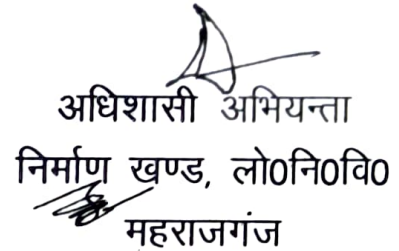 अधिशासी अभियन्ता
निर्माण खण्ड, लो0नि0वि0
महराजगंज